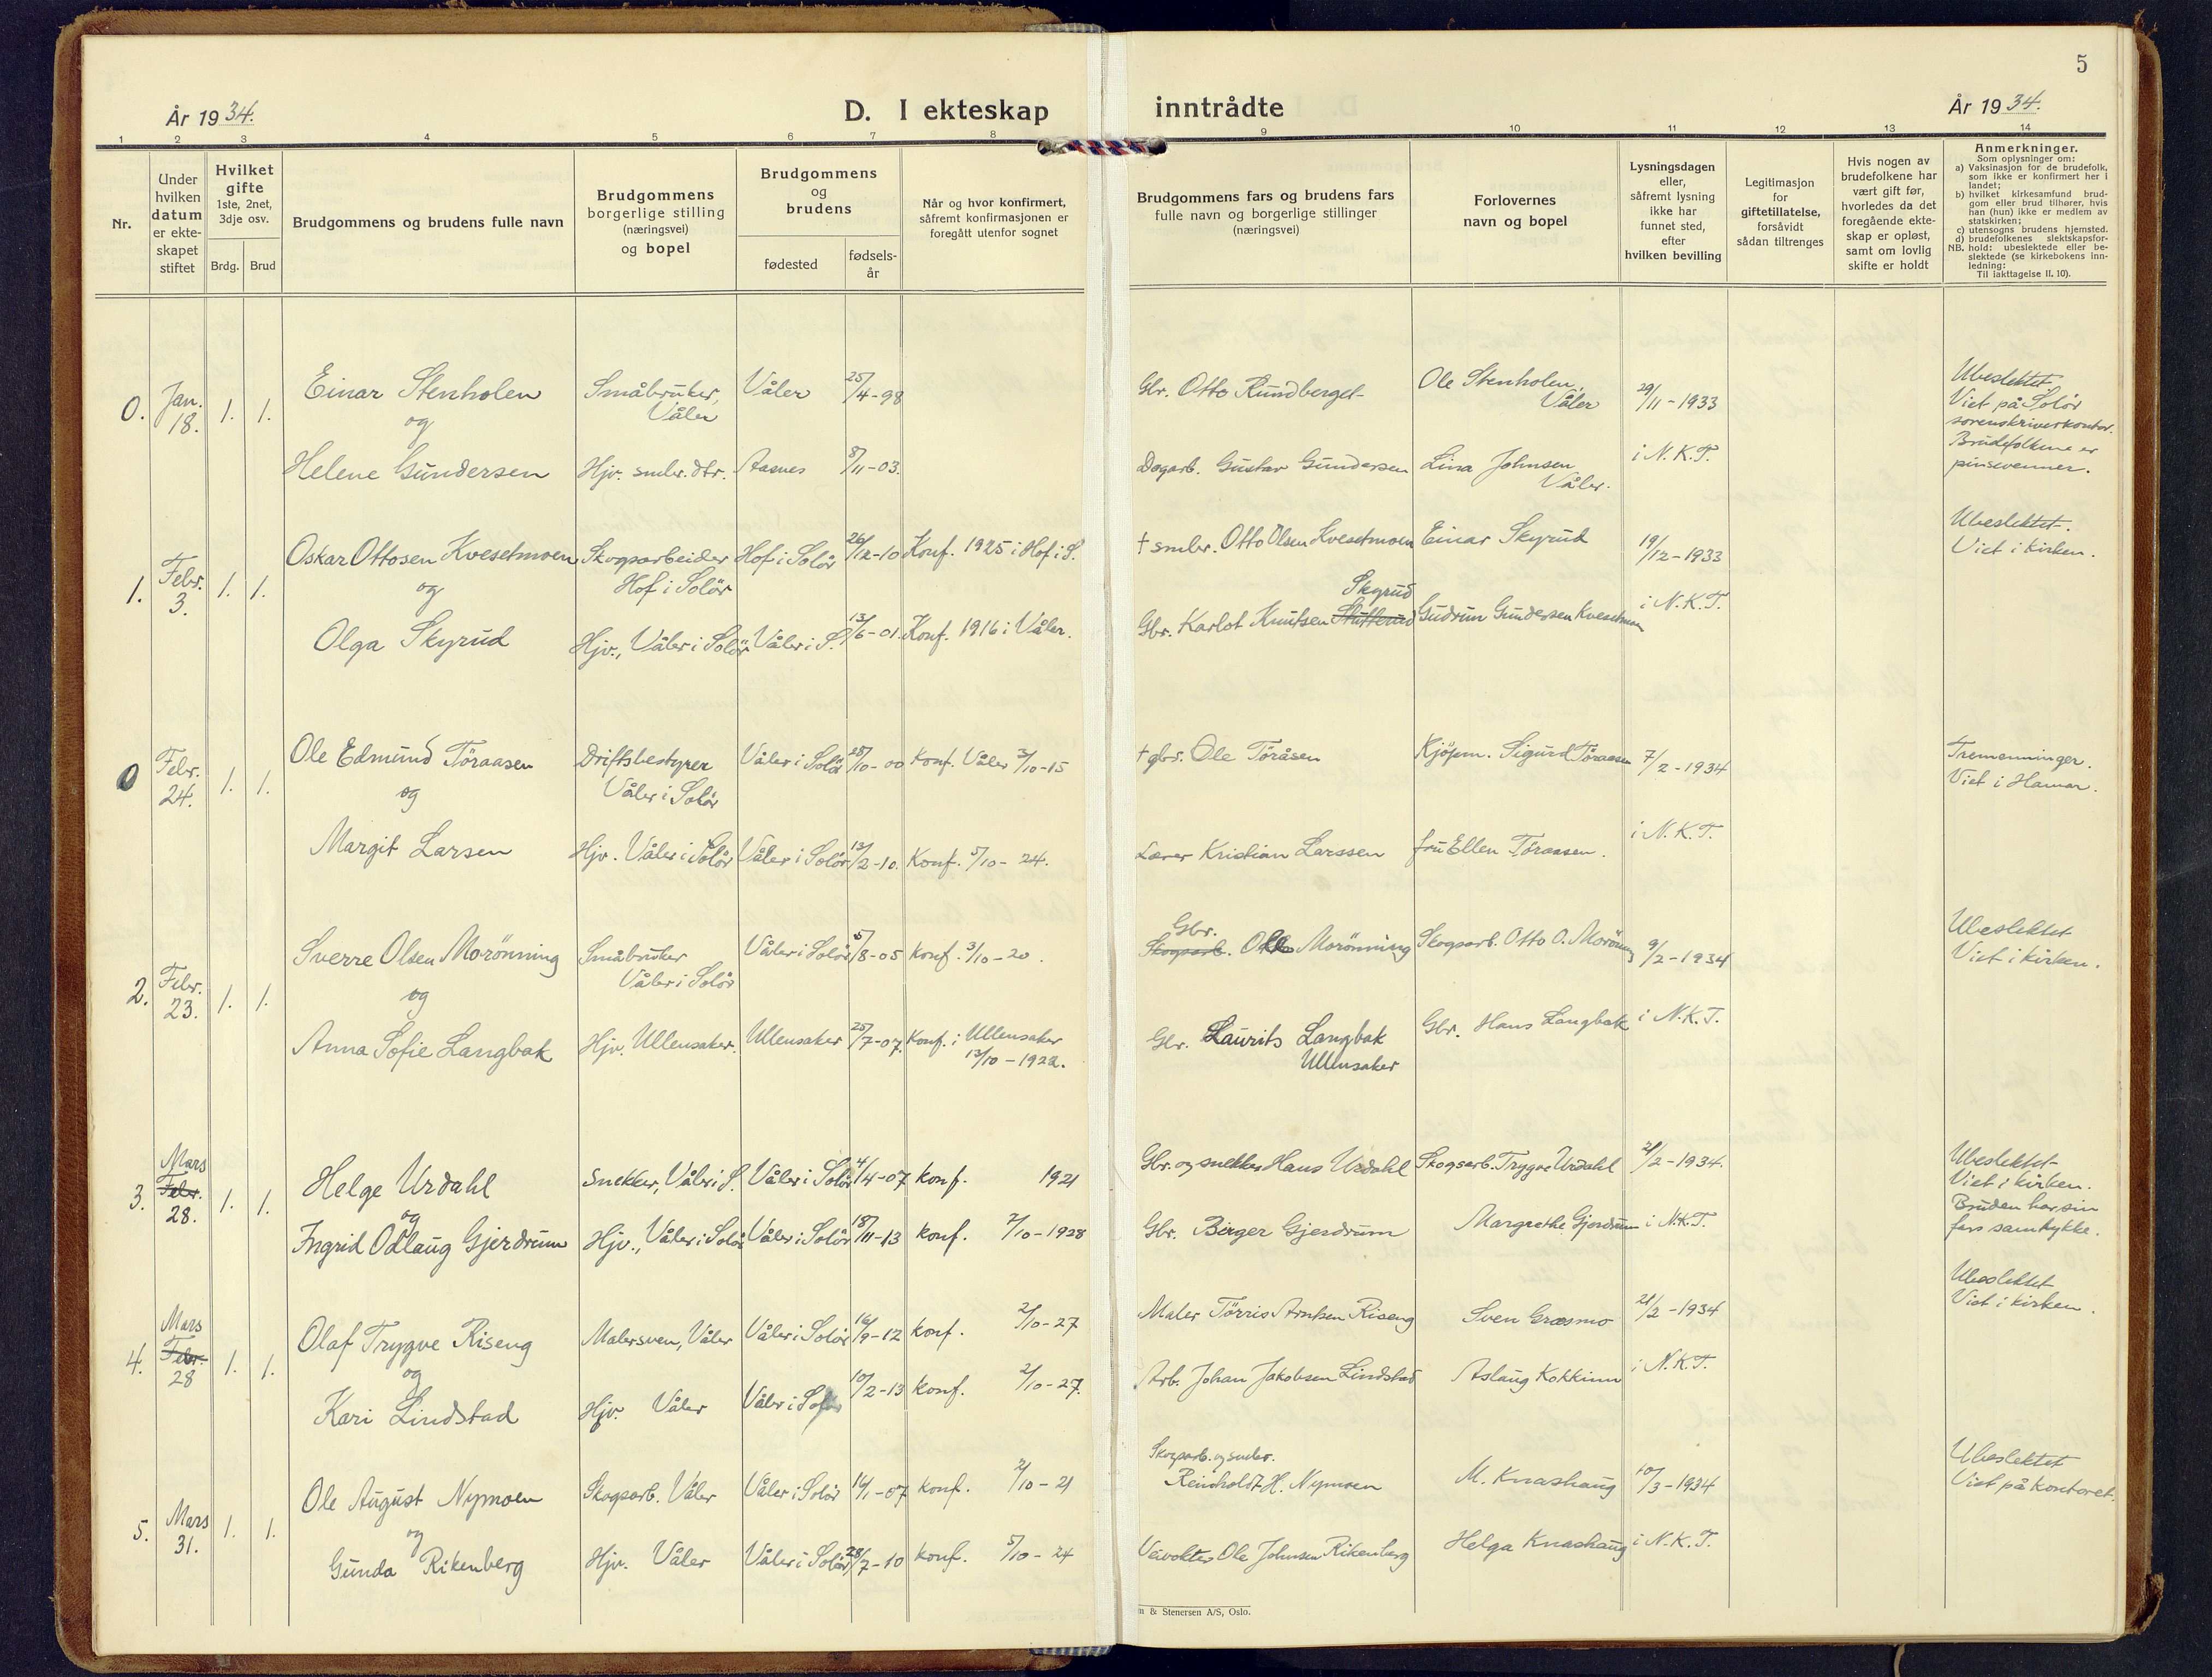 5
År 1934.
D. I ekteskap inntrådte
År 1934.
1 2 3 4 5 6 7 8 9 10 11 12 13 14
Nr.
Under hvilken datum er ekteskapet stiftet
Hvilket gifte 1ste, 2net, 3dje osv.
Brdg. Brud
Brudgommens og brudens fulle navn
Brudgommens borgerlige stilling (næringsvei) og bopel
Brudgommens og brudens
fødested
fødselsår
Når og hvor konfirmert, såfremt konfirmasjonen er foregått utenfor sognet
Brudgommens fars og brudens fars fulle navn og borgerlige stillinger (næringsvei)
Forlovernes navn og bopel
Lysningsdagen eller, såfremt lysning ikke har funnet sted, efter hvilken bevilling
Legitimasjon for giftetillatelse, forsåvidt sådan tiltrenges
Hvis nogen av brudefolkene har vært gift før, hvorledes da det foregående ekteskap er opløst, samt om lovlig skifte er holdt
Anmerkninger.
Som oplysninger om:
a) Vaksinasjon for de brudefolk, som ikke er konfirmert her i landet;
b) hvilket kirkesamfund brudgom eller brud tilhører, hvis han (hun) ikke er medlem av statskirken;
c) utensogns brudens hjemsted.
d) brudefolkenes slektskapsforhold: ubeslektede eller beslektede (se kirkebokens innledning:
NB.
Til iakttagelse II. 10).
0. Jan. 18. 1. 1.
Einar Stenholen Småbruker, Våler Våler 25/4-98 Gbr. Otto Rundberget Ole Stenholen, Våler 29/11-1933
og
Helene Gundersen Hjv. smbr. dtr. Aasnes 8/11-03. Dagarb. Gustav Gundersen Lina Johnsen Våler. i N.K.T.
Ubeslektet.
Viet på Solør
sorenskriverkontor.
Brudefolkene er
pinsevenner.
1. Febr. 3. 1. 1.
Oskar Ottosen Kvesetmoen Skogsarbeider Hof i Solør Hof i Solør 26/12-10 Konf. 1925 i Hof i S. † smbr. Otto Olsen Kvesetmoen Einar Skyrud 19/12-1933
og
Olga Skyrud Hjv., Våler i Solør Våler i S. 13/6-01. Konf. 1916 i Våler. Gbr. Karlot Knutsen Skyrud Gudrun Gundersen Kvesetmoen i N.K.T.
Ubeslektet.
Viet i kirken.
0 Febr. 24. 1. 1.
Ole Edmund Töraasen Driftsbestyrer Våler i Solør Våler i Solør 25/10-00 Konf. Våler 3/10-15 † gbr. Ole Töråsen Kjöpm. Sigurd Töraasen 7/2-1934
og
Margit Larsen Hjv. Våler i Solør Våler i Solør 13/2-10. Konf. 5/10-24. Lærer Kristian Larssen fru Ellen Töraasen. i N.K.T.
Tremenninger.
Viet i Hamar.
2. Febr. 23. 1. 1.
Sverre Olsen Morönning Småbruker Våler i Solør Våler i Solør 5/8-05 Konf. 3/10-20. Gbr. Skogsarb. Olle Morönning Skogsarb. Otto O. Morönning 9/2-1934
og
Anna Sofie Langbak Hjv. Ullensaker. Ullensaker 25/7-07. Konf. i Ullensaker 13/10-1922. Gbr. Laurits Langbak Ullensaker Gbr. Hans Langbak i N.K.T.
Ubeslektet
Viet i kirken.
3. Mars Febr. 28. 1. 1.
Helge Urdahl Snekker, Våler i S. Våler i Solør 4/4-07 Konf. 1921 Gbr. og snekker Hans Urdahl Skogsarb. Trygve Urdahl 21/2-1934.
og
Ingrid Odlaug Gjerdrum Hjv., Våler i Solør Våler i Solør 18/11-13 Konf. 7/10-1928 Gbr. Birger Gjerdrum Margrethe Gjerdrum i N.K.T.
Ubeslektet
Viet i kirken.
Bruden har sin
fars samtykke.
4. Mars Febr. 28 1. 1.
Olaf Trygve Riseng Malersven, Våler Våler i Solør 16/9-12 Konf. 2/10-27 Maler Törris Arntsen Riseng Sven Græsmo 21/2-1934
og
Kari Lindstad Hjv. Våler Våler i Solør 10/2-13 Konf. 2/10-27. Arb. Johan Jakobsen Lindstad Aslaug Kokkinn i N.K.T.
Ubeslektet
Viet i kirken.
5. Mars 31. 1. 1.
Ole August Nymoen Skogsarb. Våler Våler i Solør 16/1-07 Konf. 2/10-21 Skogsarb. og smbr. Reinholdt H. Nymoen M. Knashaug 10/3-1934
og
Gunda Rikenberg Hjv. Våler Våler i Solør 28/7-10 Konf. 5/10-24 Veivokter Ole Johnsen Rikenberg Helga Knashaug i N.K.T.
Ubeslektet
Viet på kontoret.
m & Stenersen A/S, Oslo.